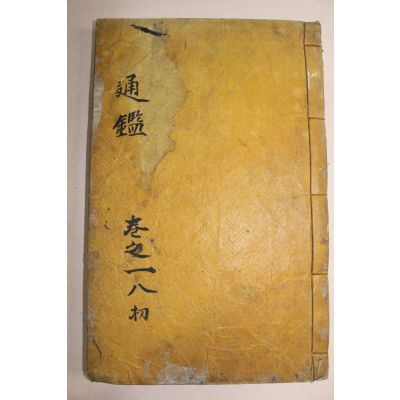 通鑑
卷之一八